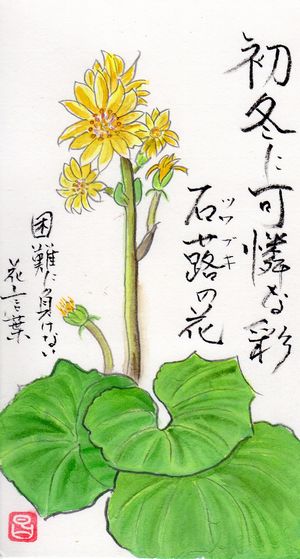 初冬に可憐な彩
石蕗の花
ツワブキ
困難に負けない
花言葉